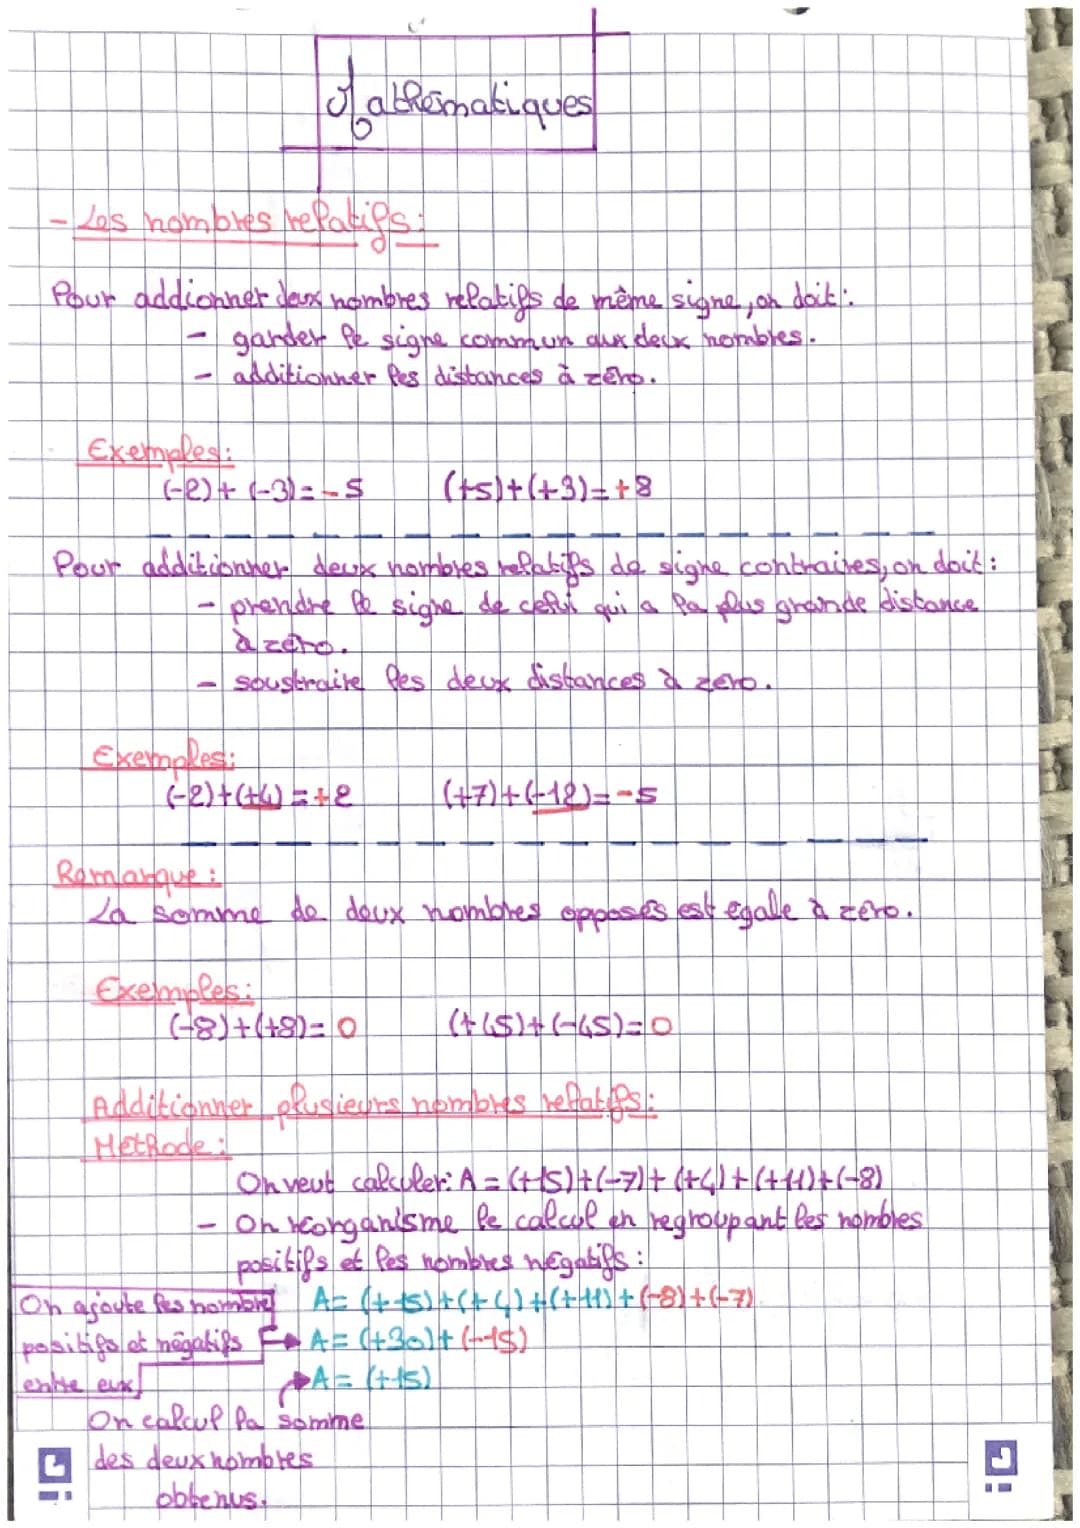 Mathématiques
- Les nombres relatifs :
Pour addionner deux nombres relatifs de même signe, on doit :
- garder le signe commun aux deux nombres.
- additionner les distances à zéro.
Exemples :
(-2)+(-3)=-5 (+5)+(+3)=+8
Pour additionner deux nombres relatifs de signe contraires, on doit :
- prendre le signe de celui qui a la plus grande distance
à zéro.
- soustraire les deux distances à zéro.
Exemples :
(-2)+(+4)=+2 (+7)+(-12)=-5
Remarque :
La somme de deux nombres opposés est égale à zéro.
Exemples :
(-8)+(+8)=0 (+45)+(-45)=0
Additionner plusieurs nombres relatifs :
Méthode :
On veut calculer : A = (+15)+(-7)+(+4)+(+11)+(-8)
- On réorganisme le calcul en regroupant les nombres
positifs et les nombres négatifs :
On ajoute les nombre A= (+15)+(+4)+(+11)+(-8)+(-7)
positifs et négatifs A= (+30)+(-15)
entre eux A= (+15)
On calcul la somme
des deux nombres
obtenus.